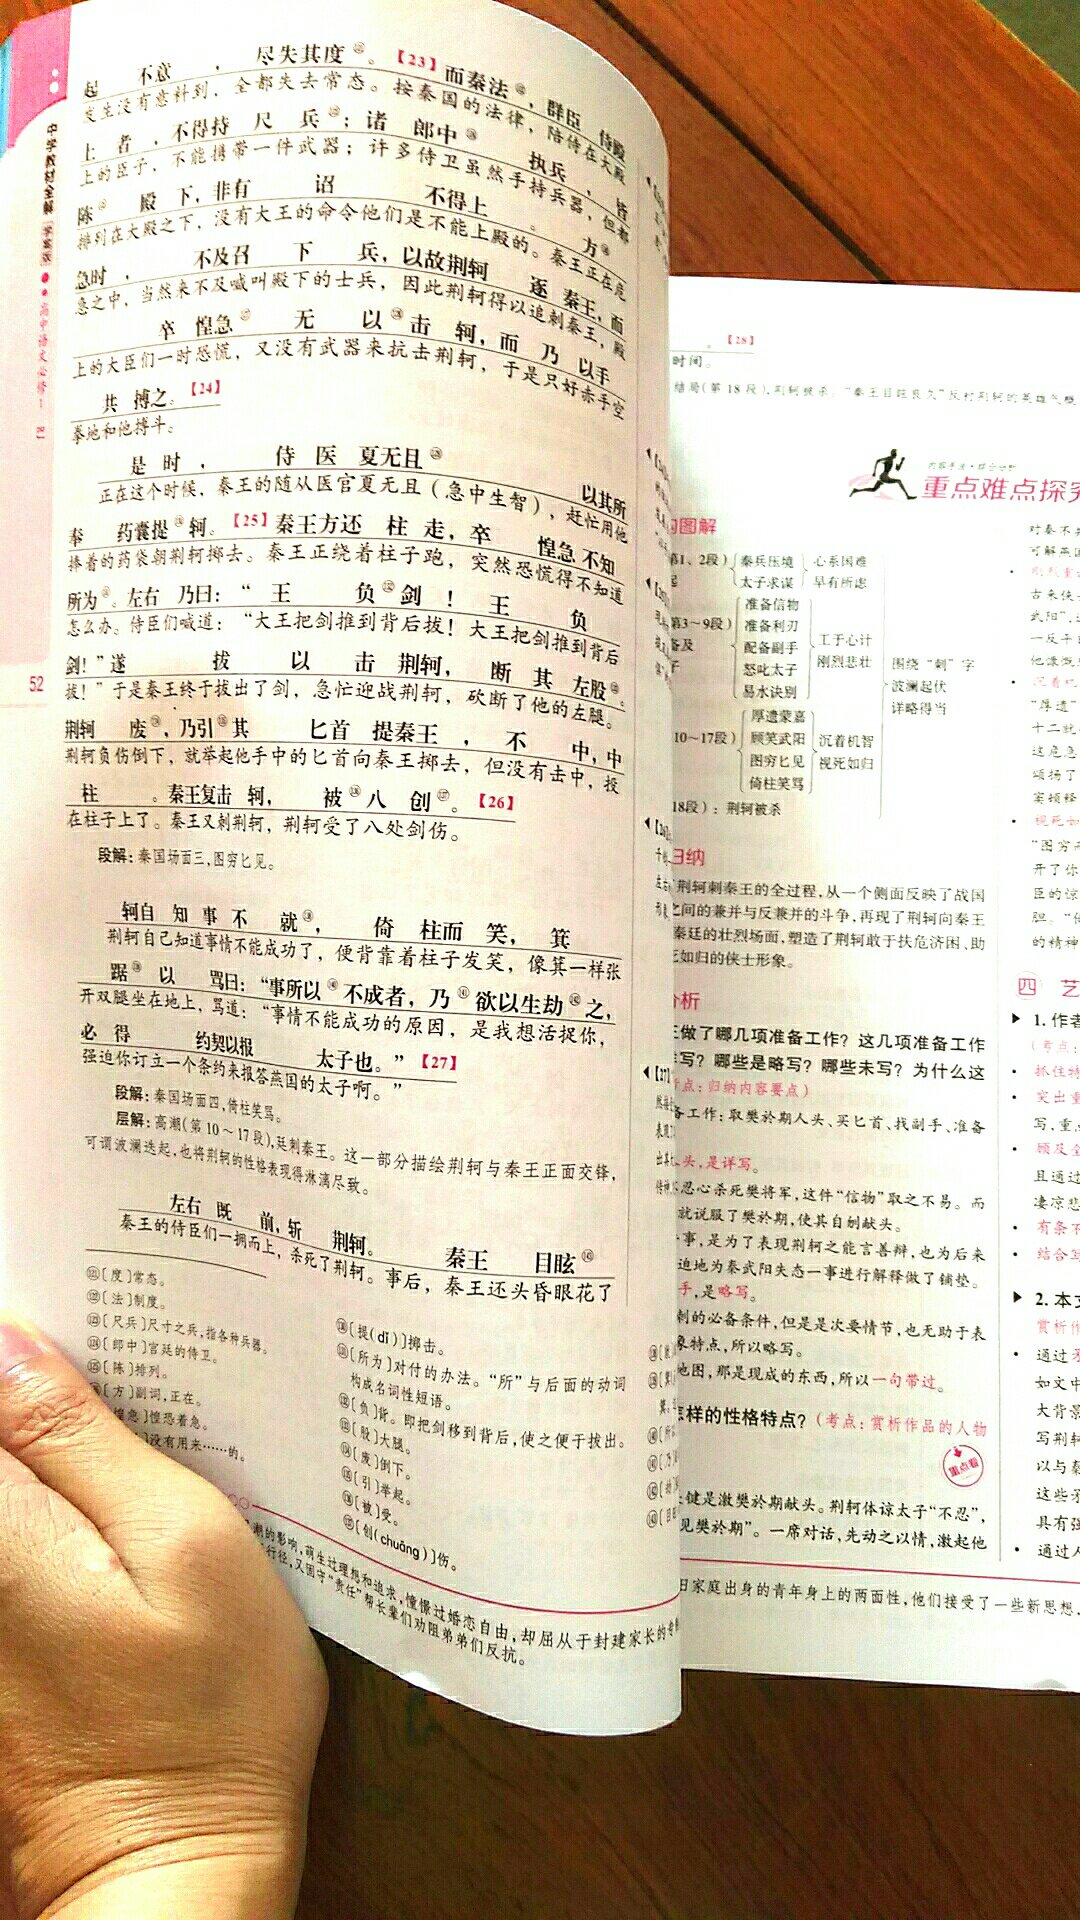 中学教材全解 学案版 高中语文必修1 RJ
52
起 不意 , 尽失其度。【23】而秦法,群臣 侍殿
发生没有意料到, 全都失去常态。按秦国的法律, 陪侍在大殿
上 者 , 不得持 尺 兵 ; 诸 郎中 执兵 , 皆
上的臣子, 不能携带一件武器; 许多侍卫虽然手持兵器, 但都
陈 殿 下, 非有 诏 不得上 。 方
排列在大殿之下, 没有大王的命令他们是不能上殿的。秦王正在危
急时 , 不及召 下 兵, 以故荆轲 逐 秦王, 而
急之中, 当然来不及喊叫殿下的士兵, 因此荆轲得以追刺秦王, 殿
卒 惶急 无 以 击 轲, 而 乃 以手
上的大臣们一时恐慌, 又没有武器来抗击荆轲, 于是只好赤手空
共 搏之。【24】
拳地和他搏斗。
是 时 , 侍 医 夏无且 以其所
正在这个时候, 秦王的随从医官夏无且(急中生智), 赶忙用他
奉 药囊提 轲。【25】秦王方还 柱 走, 卒 惶急 不知
捧着的药袋朝荆轲掷去。秦王正绕着柱子跑, 突然恐慌得不知道
所为。左右 乃曰: “王 负 剑 ! 王 负
怎么办。侍臣们喊道: “大王把剑推到背后拔! 大王把剑推到背后
剑!”遂 拔 以 击 荆轲, 断 其 左股。
拔!”于是秦王终于拔出了剑, 急忙迎战荆轲, 砍断了他的左腿。
荆轲 废, 乃引 其 匕首 提秦王 , 不 中, 中
荆轲负伤倒下, 就举起他手中的匕首向秦王掷去, 但没有击中, 投
柱 。秦王复击 轲, 被 八 创 。【26】
在柱子上了。秦王又刺荆轲, 荆轲受了八处剑伤。
段解: 秦国场面三, 图穷匕见。
轲自 知 事 不 就, 倚 柱而 笑, 箕
荆轲自己知道事情不能成功了, 便背靠着柱子发笑, 像箕一样张
踞 以 骂曰: “事所以 不成者, 乃 欲以生劫 之,
开双腿坐在地上, 骂道: “事情不能成功的原因, 是我想活捉你,
必 得 约契以报 太子也。”【27】
强迫你订立一个条约来报答燕国的太子啊。”
段解: 秦国场面四, 倚柱笑骂。
层解: 高潮(第10～17段), 廷刺秦王。这一部分描绘荆轲与秦王正面交锋,
可谓波澜迭起, 也将荆轲的性格表现得淋漓尽致。
左右 既 前, 斩 荆轲。 秦王 目眩
秦王的侍臣们一拥而上, 杀死了荆轲。事后, 秦王还头昏眼花了
〔度〕常态。
〔法〕制度。
〔尺兵〕尺寸之兵, 指各种兵器。
〔郎中〕宫廷的侍卫。
〔陈〕排列。
〔方〕副词, 正在。
惶急〕惶恐着急。
〕没有用来……的。
〔提(dǐ)〕掷击。
〔所为〕对付的办法。“所”与后面的动词
构成名词性短语。
〔负〕背。即把剑移到背后, 使之便于拔出。
〔股〕大腿。
〔废〕倒下。
〔引〕举起。
〔被〕受。
〔创(chuāng)〕伤。
潮的影响, 萌生过理想和追求, 憧憬过婚恋自由, 却屈从于封建家长的专
行径, 又固守“责任”帮长辈们劝阻弟弟们反抗。
。【28】
时间。
结局(第18段), 荆轲被杀。“秦王目眩良久”反衬荆轲的英雄气概
内容手法·综合分析
重点难点探究
图解
第1、2段) 秦兵压境 心系国难
起 太子求谋 早有所虑
准备信物
第3～9段) 准备利刃
备及 配备副手 工于心计
怒叱太子 刚烈悲壮 围绕“刺”字
易水诀别 波澜起伏
厚遗蒙嘉 详略得当
10～17段) 顾笑武阳 沉着机智
图穷匕见 视死如归
倚柱笑骂
18段): 荆轲被杀
归纳
荆轲刺秦王的全过程, 从一个侧面反映了战国
之间的兼并与反兼并的斗争, 再现了荆轲向秦王
秦廷的壮烈场面, 塑造了荆轲敢于扶危济困、助
如归的侠士形象。
分析
做了哪几项准备工作? 这几项准备工作
写? 哪些是略写? 哪些未写? 为什么这
点: 归纳内容要点)
备工作: 取樊於期人头、买匕首、找副手、准备
头, 是详写。
忍心杀死樊将军, 这件“信物”取之不易。而
就说服了樊於期, 使其自刎献头。
事, 是为了表现荆轲之能言善辩, 也为后来
迫地为秦武阳失态一事进行解释做了铺垫。
手, 是略写。
刺的必备条件, 但是是次要情节, 也无助于表
象特点, 所以略写。
地图, 那是现成的东西, 所以一句带过。
怎样的性格特点? (考点: 赏析作品的人物
重点看
键是激樊於期献头。荆轲体谅太子“不忍”,
见樊於期”。一席对话, 先动之以情, 激起他
日家庭出身的青年身上的两面性, 他们接受了一些新思想,
对秦不
可解燕国
古来侠
武阳”
一反平
他慷慨
“厚遗”
十二就
这危急
颂扬了
案顿释
“图穷
开了你
臣的惊
胆。“
的精神
四 艺
1. 作者
(考点:
抓住特
突出重
写, 重点
顾及全
且通过
凄凉悲
有条不
结合写
2. 本文
赏析作
通过矛
如文中
大背景
写荆轲
以与秦
这些矛
具有强
通过人